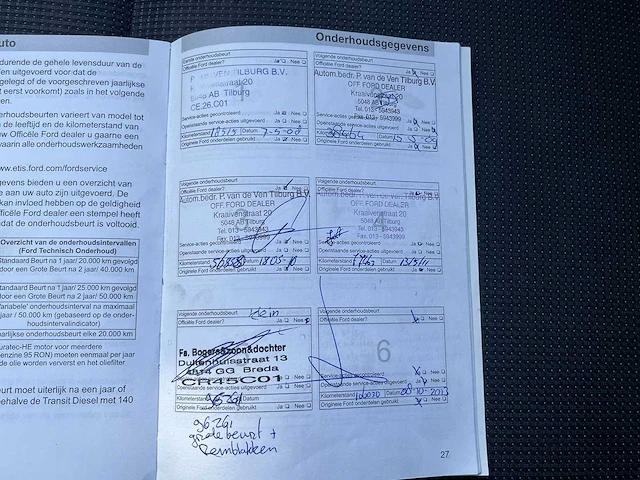 uto
durende de gehele levensduur van de
en uitgevoerd voor dat de
gelegd of de voorgeschreven jaarlijkse
eerst voorkomt) zoals in het volgende
en.
derhoudsbeurten varieert van model tot
de leeftijd en de kilometerstand van
w Officiële Ford dealer u gaarne een
waarin alle onderhoudswerkzaamheden
www.etis.ford.com/fordservice
gevens bieden u een overzicht van
aan uw auto zijn uitgevoerd. De
kan invloed hebben op de geldigheid
fficiële Ford dealer een stempel heeft
dat de onderhoudsbeurt is voltooid.
Overzicht van de onderhoudsintervallen
(Ford Technisch Onderhoud)
Standaard Beurt na 1 jaar/ 20.000 km gevolgd
door een Grote Beurt na 2 jaar/ 40.000 km
Standaard Beurt na 1 jaar/ 25.000 km gevolgd
door een Grote Beurt na 2 jaar/ 50.000 km
'Variabele' onderhoudsinterval na maximaal
jaar / 50.000 km (gebaseerd op de onder-
houdsintervalindicator)
aarlijkse onderhoudsbeurt elke 20.000 km
uratec-HE motor voor meerdere
benzine 95 RON) moeten eenmaal per jaar
de olie worden ververst en het oliefilter
eurt moet uiterlijk na een jaar of
behalve de Transit Diesel met 140
Onderhoudsgegevens
Eerste onderhoudsbeurt
Officiële Ford dealer? Ja Nee
VEN TILBURG B.V.
straat 20
AB Tilburg
CE.26.C01
Service-acties gecontroleerd Ja Nee
Openstaande service-acties uitgevoerd Ja Nee
Kilometerstand 18515 Datum 7-5-08
Originele Ford onderdelen gebruikt Ja Nee
Volgende onderhoudsbeurt
Officiële Ford dealer? Ja Nee
Autom.bedr. P. van de Ven Tilburg B.V.
OFF. FORD DEALER
Kraaivenstraat 20
5048 AB Tilburg
Tel. 013 - 5943943
Fax. 013 - 5943999
Service-acties gecontroleerd Ja Nee
Openstaande service-acties uitgevoerd Ja Nee
Kilometerstand Datum
Originele Ford onderdelen gebruikt Ja Nee
Volgende onderhoudsbeurt
Officiële Ford dealer? Ja Nee
Autom.bedr. P. van de Ven Tilburg B.V.
OFF. FORD DEALER
Kraaivenstraat 20
5048 AB Tilburg
Tel. 013 - 5943943
Fax. 013 - 5943999
Service-acties gecontroleerd Ja Nee
Openstaande service-acties uitgevoerd Ja Nee
Kilometerstand Datum
Originele Ford onderdelen gebruikt Ja Nee
Volgende onderhoudsbeurt
Officiële Ford dealer? Ja Nee
Autom.bedr. P. van de Ven Tilburg B.V.
OFF. FORD DEALER
Kraaivenstraat 20
5048 AB Tilburg
Tel. 013 - 5943943
Fax. 013 - 5943999
Service-acties gecontroleerd Ja Nee
Openstaande service-acties uitgevoerd Ja Nee
Kilometerstand Datum 13/5/11
Originele Ford onderdelen gebruikt Ja Nee
Volgende onderhoudsbeurt klein
Officiële Ford dealer? Ja Nee
Fa. Bogers&zoon&dochter
Duifenhuisstraat 13
4814 GG Breda
CR45C01
Openstaande service-acties uitgevoerd Ja Nee
Kilometerstand 96261 Datum
Originele Ford onderdelen gebruikt Ja Nee
96261
grote beurt +
remblokken
Volgende onderhoudsbeurt
Officiële Ford dealer? Ja Nee
6
Service-acties gecontroleerd Ja Nee
Openstaande service-acties uitgevoerd Ja Nee
Kilometerstand Datum 08-10-2013
Originele Ford onderdelen gebruikt Ja Nee
27